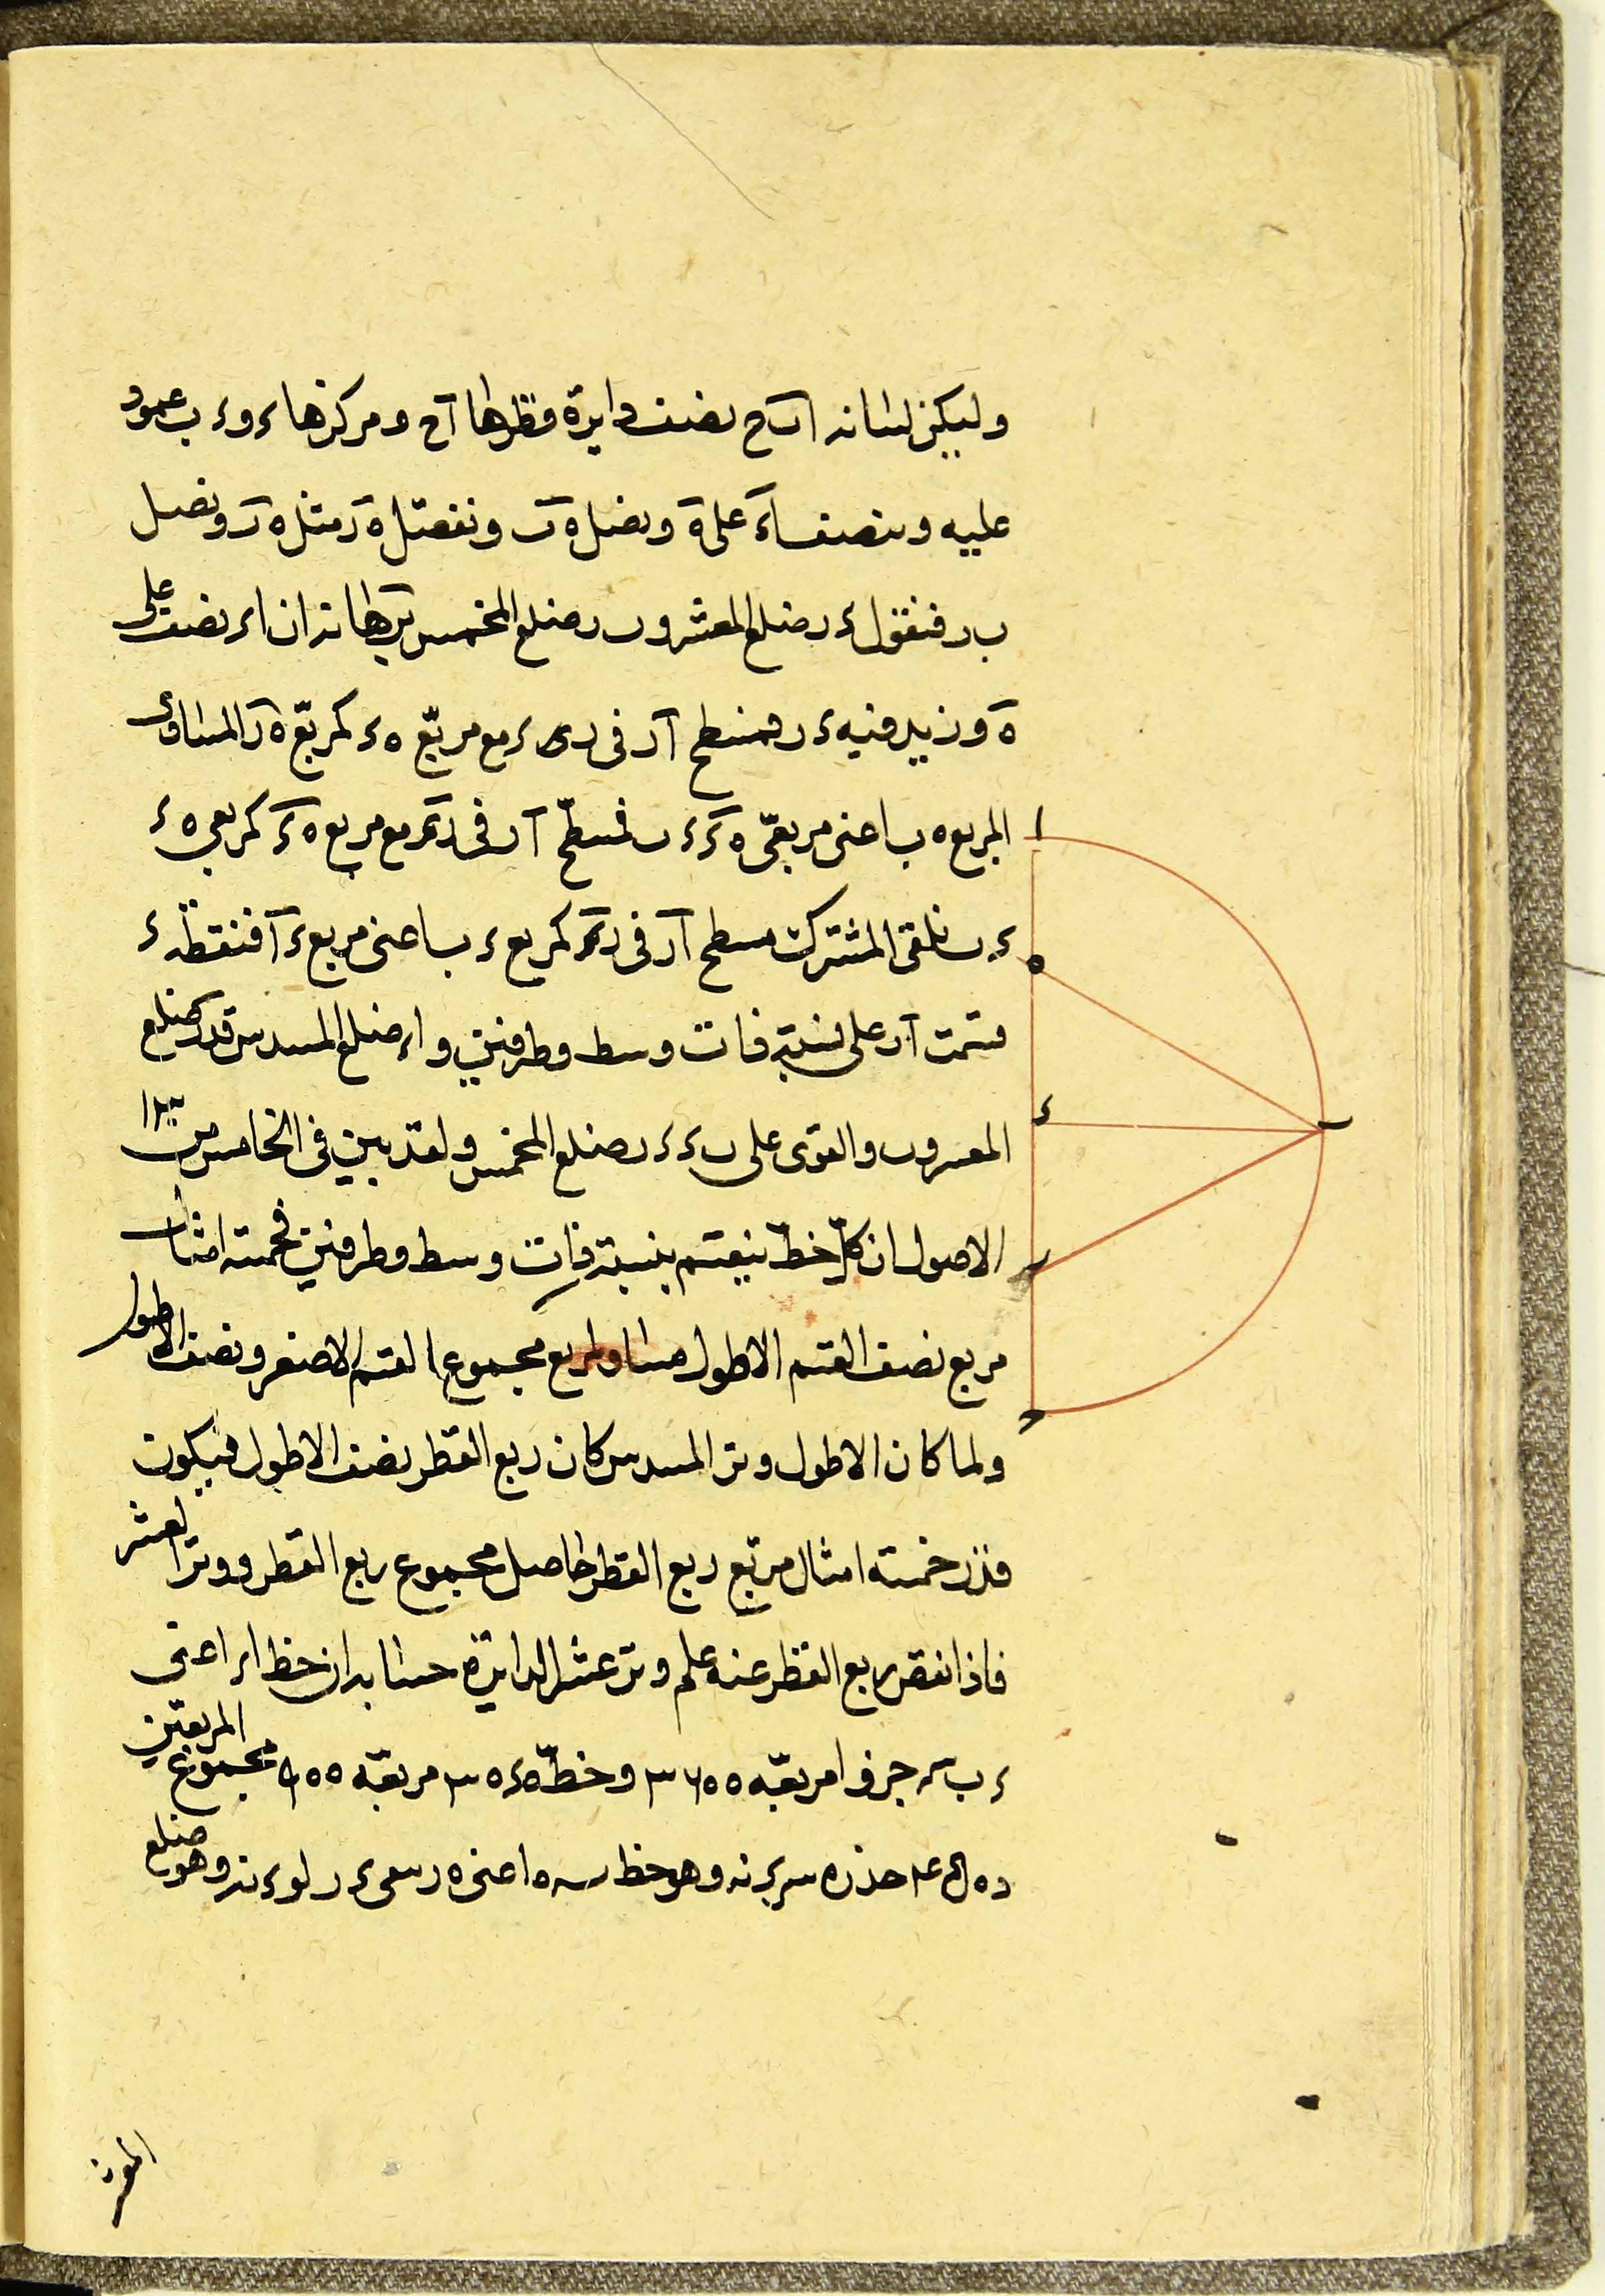 وليكن لبيانه ا ب ح نصف دايرة قطرها آح ومركزها ء و ء ب عمود
عليه وننصف اء على ه ونصل ه ب ونفصل ه ر مثل ه ب ونصل
ب ر فنقول ء ر ضلع المعشر و ب ر ضلع المخمس برهانه ان اء نصف على
ه وزيد فيه ء ر فسطح آر فى ر ء مع مربّع ه ء كمربّع ه ر المساوى
المربع ه ب اعنى مربعى ه ء ء ب فسطح آر فى ر ء مع مربع ه ء كمربعى ه ء
ء ب نلقى المشترك سطح آر فى ر ء كمربع ء ب اعنى مربع ء آ فنقطه ء
قسمت آر على نسبة ذات وسط وطرفين و اء ضلع المسدس ڡدر ضلع
المعسر و ب ر القوى على ب ء ء ر ضلع المخمس ولقد بين فى الخامس من
الاصول ان كلّ خطّ ينقسم بنسبة ذات وسط وطرفين فخمسة امثال
مربع نصف القسم الاطول مساو لمربع مجموع القسم الاصغر ونصف الاطول
ولما كان الاطول وتر المسدس كان ربع القطر نصف الاطول فيكون
فذر خمسة امثال مربّع ربع القطر حاصل مجموع ربع القطر ووتر العشر
فاذا نقص ربع القطر عنه علم وتر عشر الدايرة حسابه ان خط اء اعنى
ء ب س جزوا مربعّه ٣٦٥٥ وخطّ ه ء ٣٥ مربعّه ٩٥٥ مجموع المربعين
جذره وهو خط ب ه اعنى ه ر وهو ضلع
المعشر
ا
ه
ء
ب
ر
ح